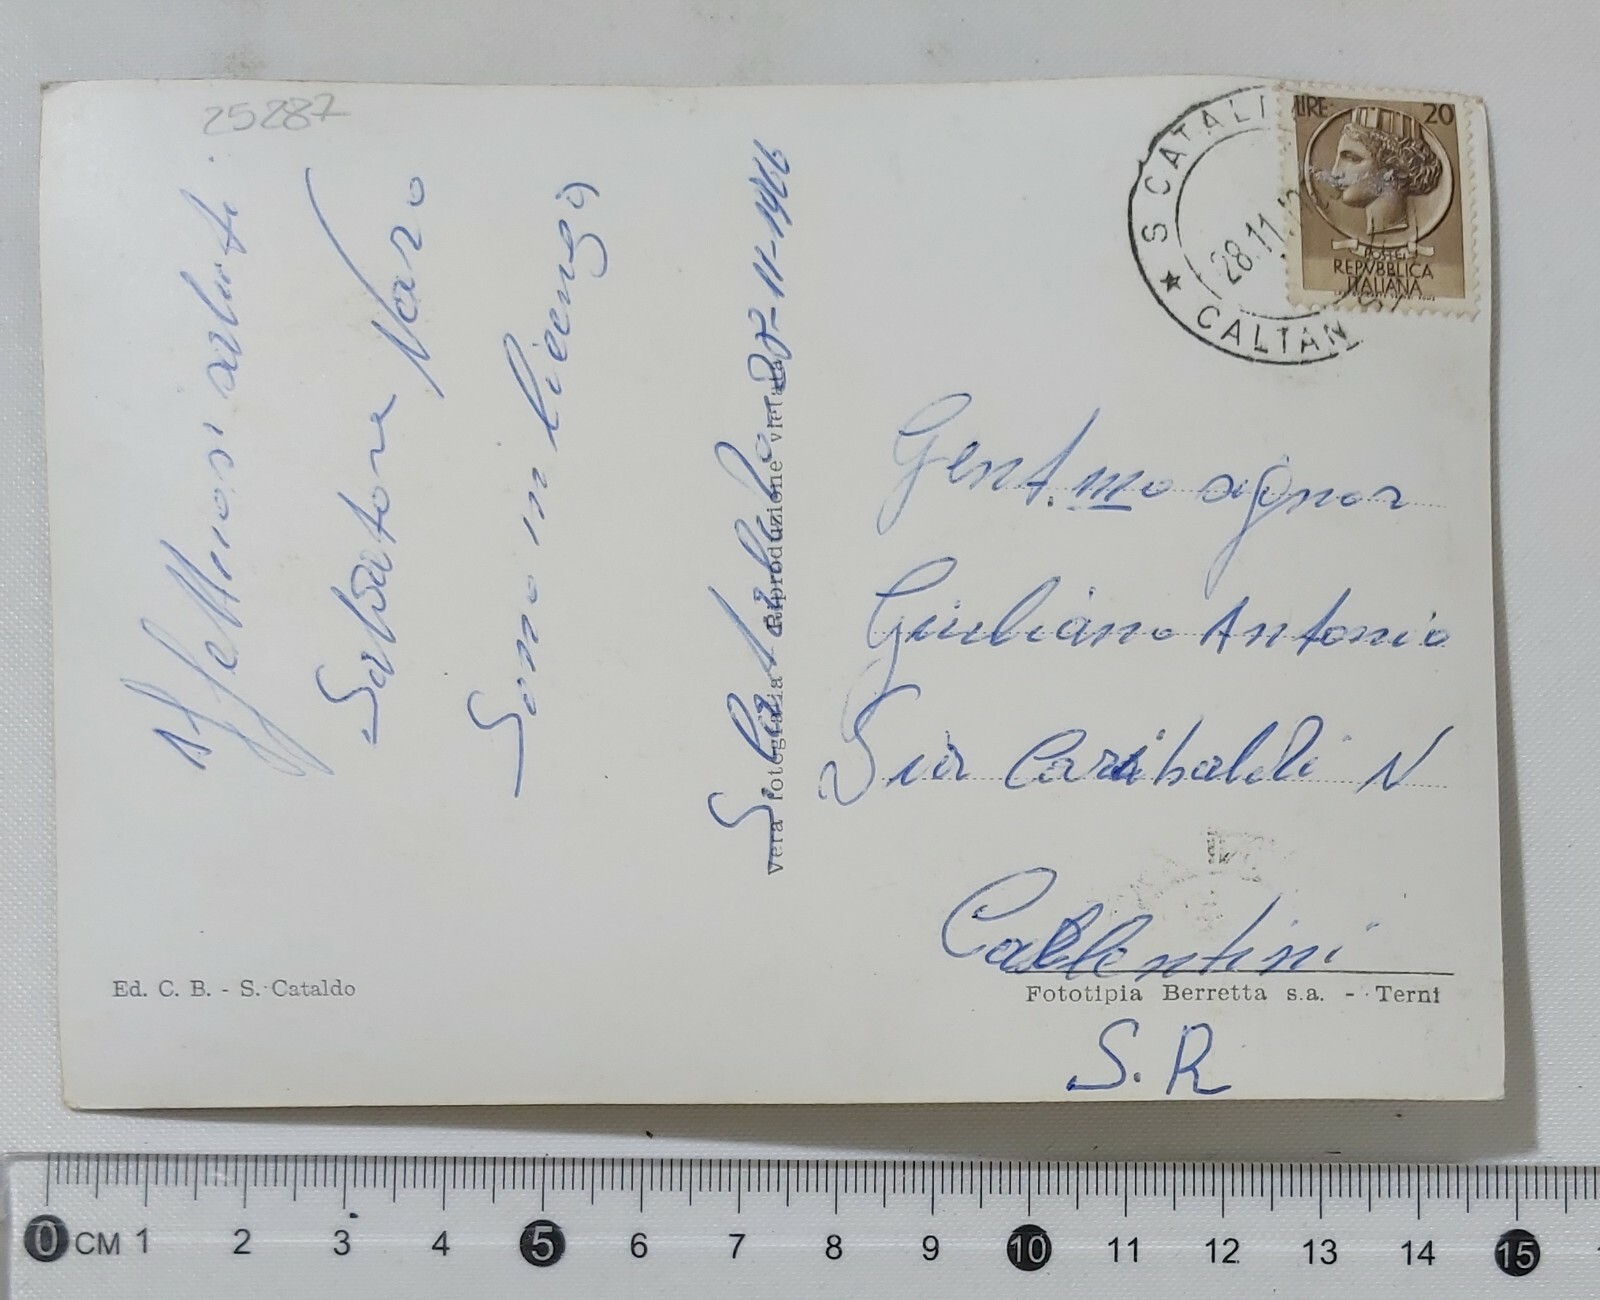 25287
Affettuosi saluti
Salvatore Naro
Sono in licenza
S. Cataldo 27-11-1966
Vera fotografia Riproduzione vietata
S CATALDO
28.11.
CALTAN
LIRE 20
POSTE
REPVBBLICA
ITALIANA
Gent.mo signor
Giuliano Antonio
Via Garibaldi N
Carlentini
S.R
Ed. C. B. - S. Cataldo
Fototipia Berretta s.a. - Terni
0 CM 1 2 3 4 5 6 7 8 9 10 11 12 13 14 15